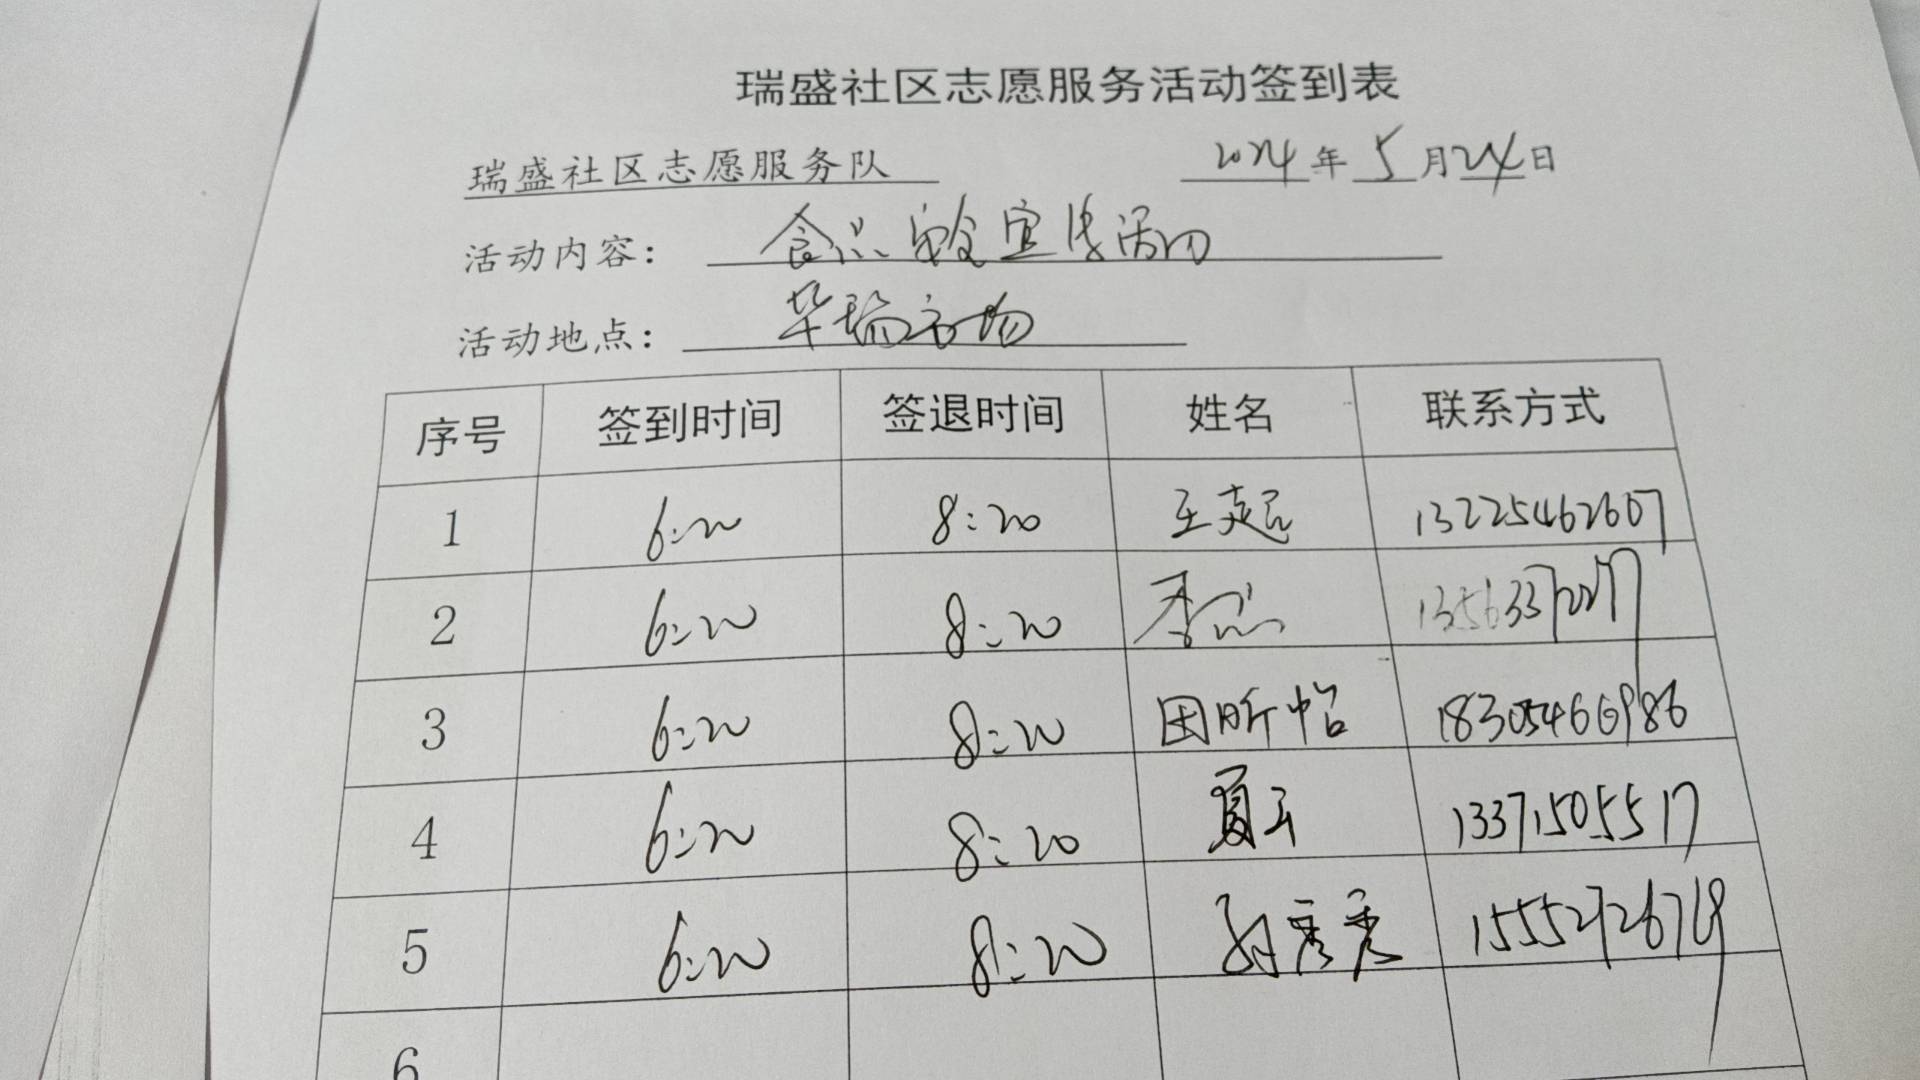 瑞盛社区志愿服务活动签到表
瑞盛社区志愿服务队 2024年5月24日
活动内容: 食品安全宣传活动
活动地点: 华瑞市场
序号 签到时间 签退时间 姓名 联系方式
1 6:20 8:20 王 13225462607
2 6:20 8:20 李
3 6:20 8:20 田昕怡 18305466986
4 6:20 8:20 夏云 13371505517
5 6:20 8:20 孙秀秀 15552726719
6